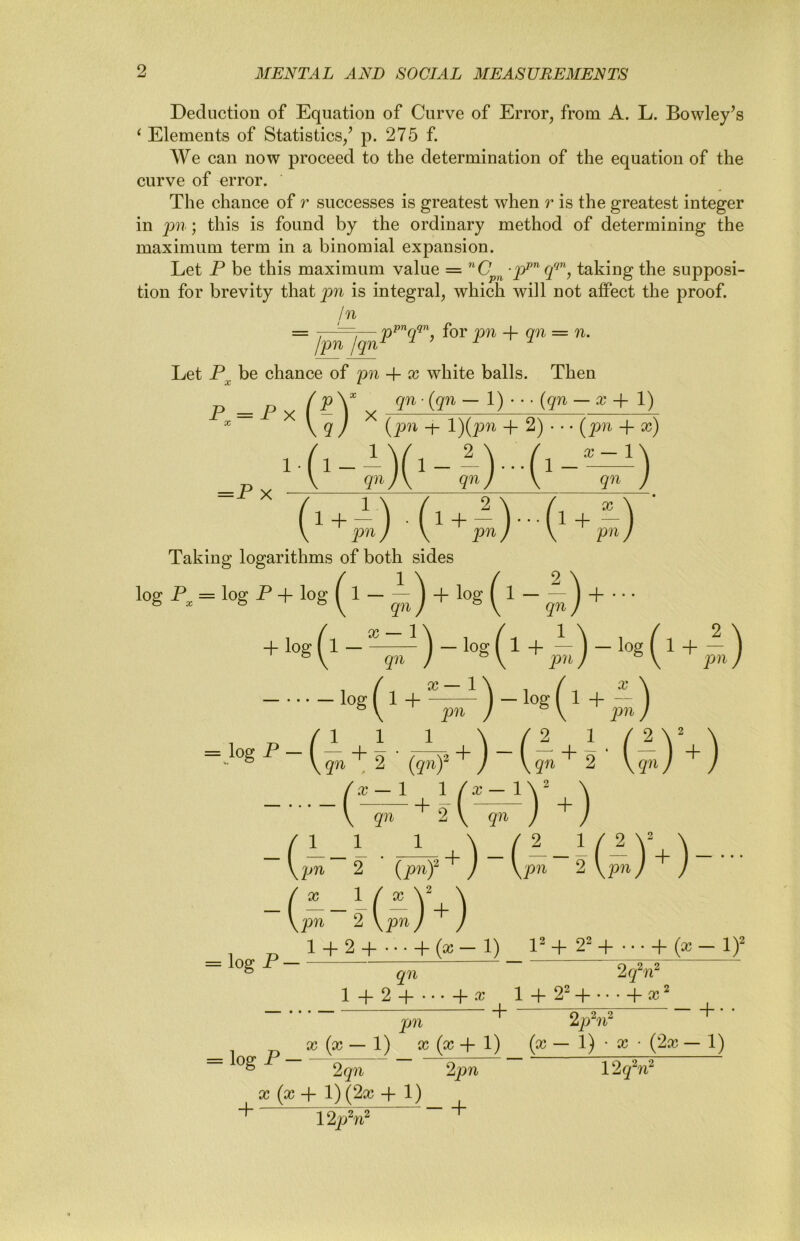 2 MENTAL AND SOCIAL MEASUREMENTS
Deduction of Equation of Curve of Error, from A. L. Bowley's
‘ Elements of Statistics,’ p. 275 f.
We can now proceed to the determination of the equation of the
curve of error.
The chance of r successes is greatest when r is the greatest integer
in pn ; this is found by the ordinary method of determining the
maximum term in a binomial expansion.
Let P be this maximum value = ⁿC_{pn} · p^{pn} q^{qn}, taking the supposi-
tion for brevity that pn is integral, which will not affect the proof.
= \frac{|n}{|pn |qn} p^{pn} q^{qn}, for pn + qn = n.
Let P_x be chance of pn + x white balls. Then
P_x = P × (\frac{p}{q})^x × \frac{qn · (qn − 1) · · · (qn − x + 1)}{(pn + 1)(pn + 2) · · · (pn + x)}
= P × \frac{1 · (1 − \frac{1}{qn})(1 − \frac{2}{qn}) · · · (1 − \frac{x − 1}{qn})}{(1 + \frac{1}{pn}) · (1 + \frac{2}{pn}) · · · (1 + \frac{x}{pn})}.
Taking logarithms of both sides
log P_x = log P + log (1 − \frac{1}{qn}) + log (1 − \frac{2}{qn}) + · · ·
+ log (1 − \frac{x − 1}{qn}) − log (1 + \frac{1}{pn}) − log (1 + \frac{2}{pn})
− · · · − log (1 + \frac{x − 1}{pn}) − log (1 + \frac{x}{pn})
= log P − (\frac{1}{qn} + \frac{1}{2} · \frac{1}{(qn)^2} +) − (\frac{2}{qn} + \frac{1}{2} · (\frac{2}{qn})^2 +)
− · · · − (\frac{x − 1}{qn} + \frac{1}{2} (\frac{x − 1}{qn})^2 +)
− (\frac{1}{pn} − \frac{1}{2} · \frac{1}{(pn)^2} +) − (\frac{2}{pn} − \frac{1}{2} (\frac{2}{pn})^2 +) − · · ·
− (\frac{x}{pn} − \frac{1}{2} (\frac{x}{pn})^2 +)
= log P − \frac{1 + 2 + · · · + (x − 1)}{qn} − \frac{1^2 + 2^2 + · · · + (x − 1)^2}{2q^2n^2}
− · · · − \frac{1 + 2 + · · · + x}{pn} + \frac{1 + 2^2 + · · · + x^2}{2p^2n^2} − + · ·
= log P − \frac{x (x − 1)}{2qn} − \frac{x (x + 1)}{2pn} − \frac{(x − 1) · x · (2x − 1)}{12q^2n^2}
+ \frac{x (x + 1) (2x + 1)}{12p^2n^2} − +